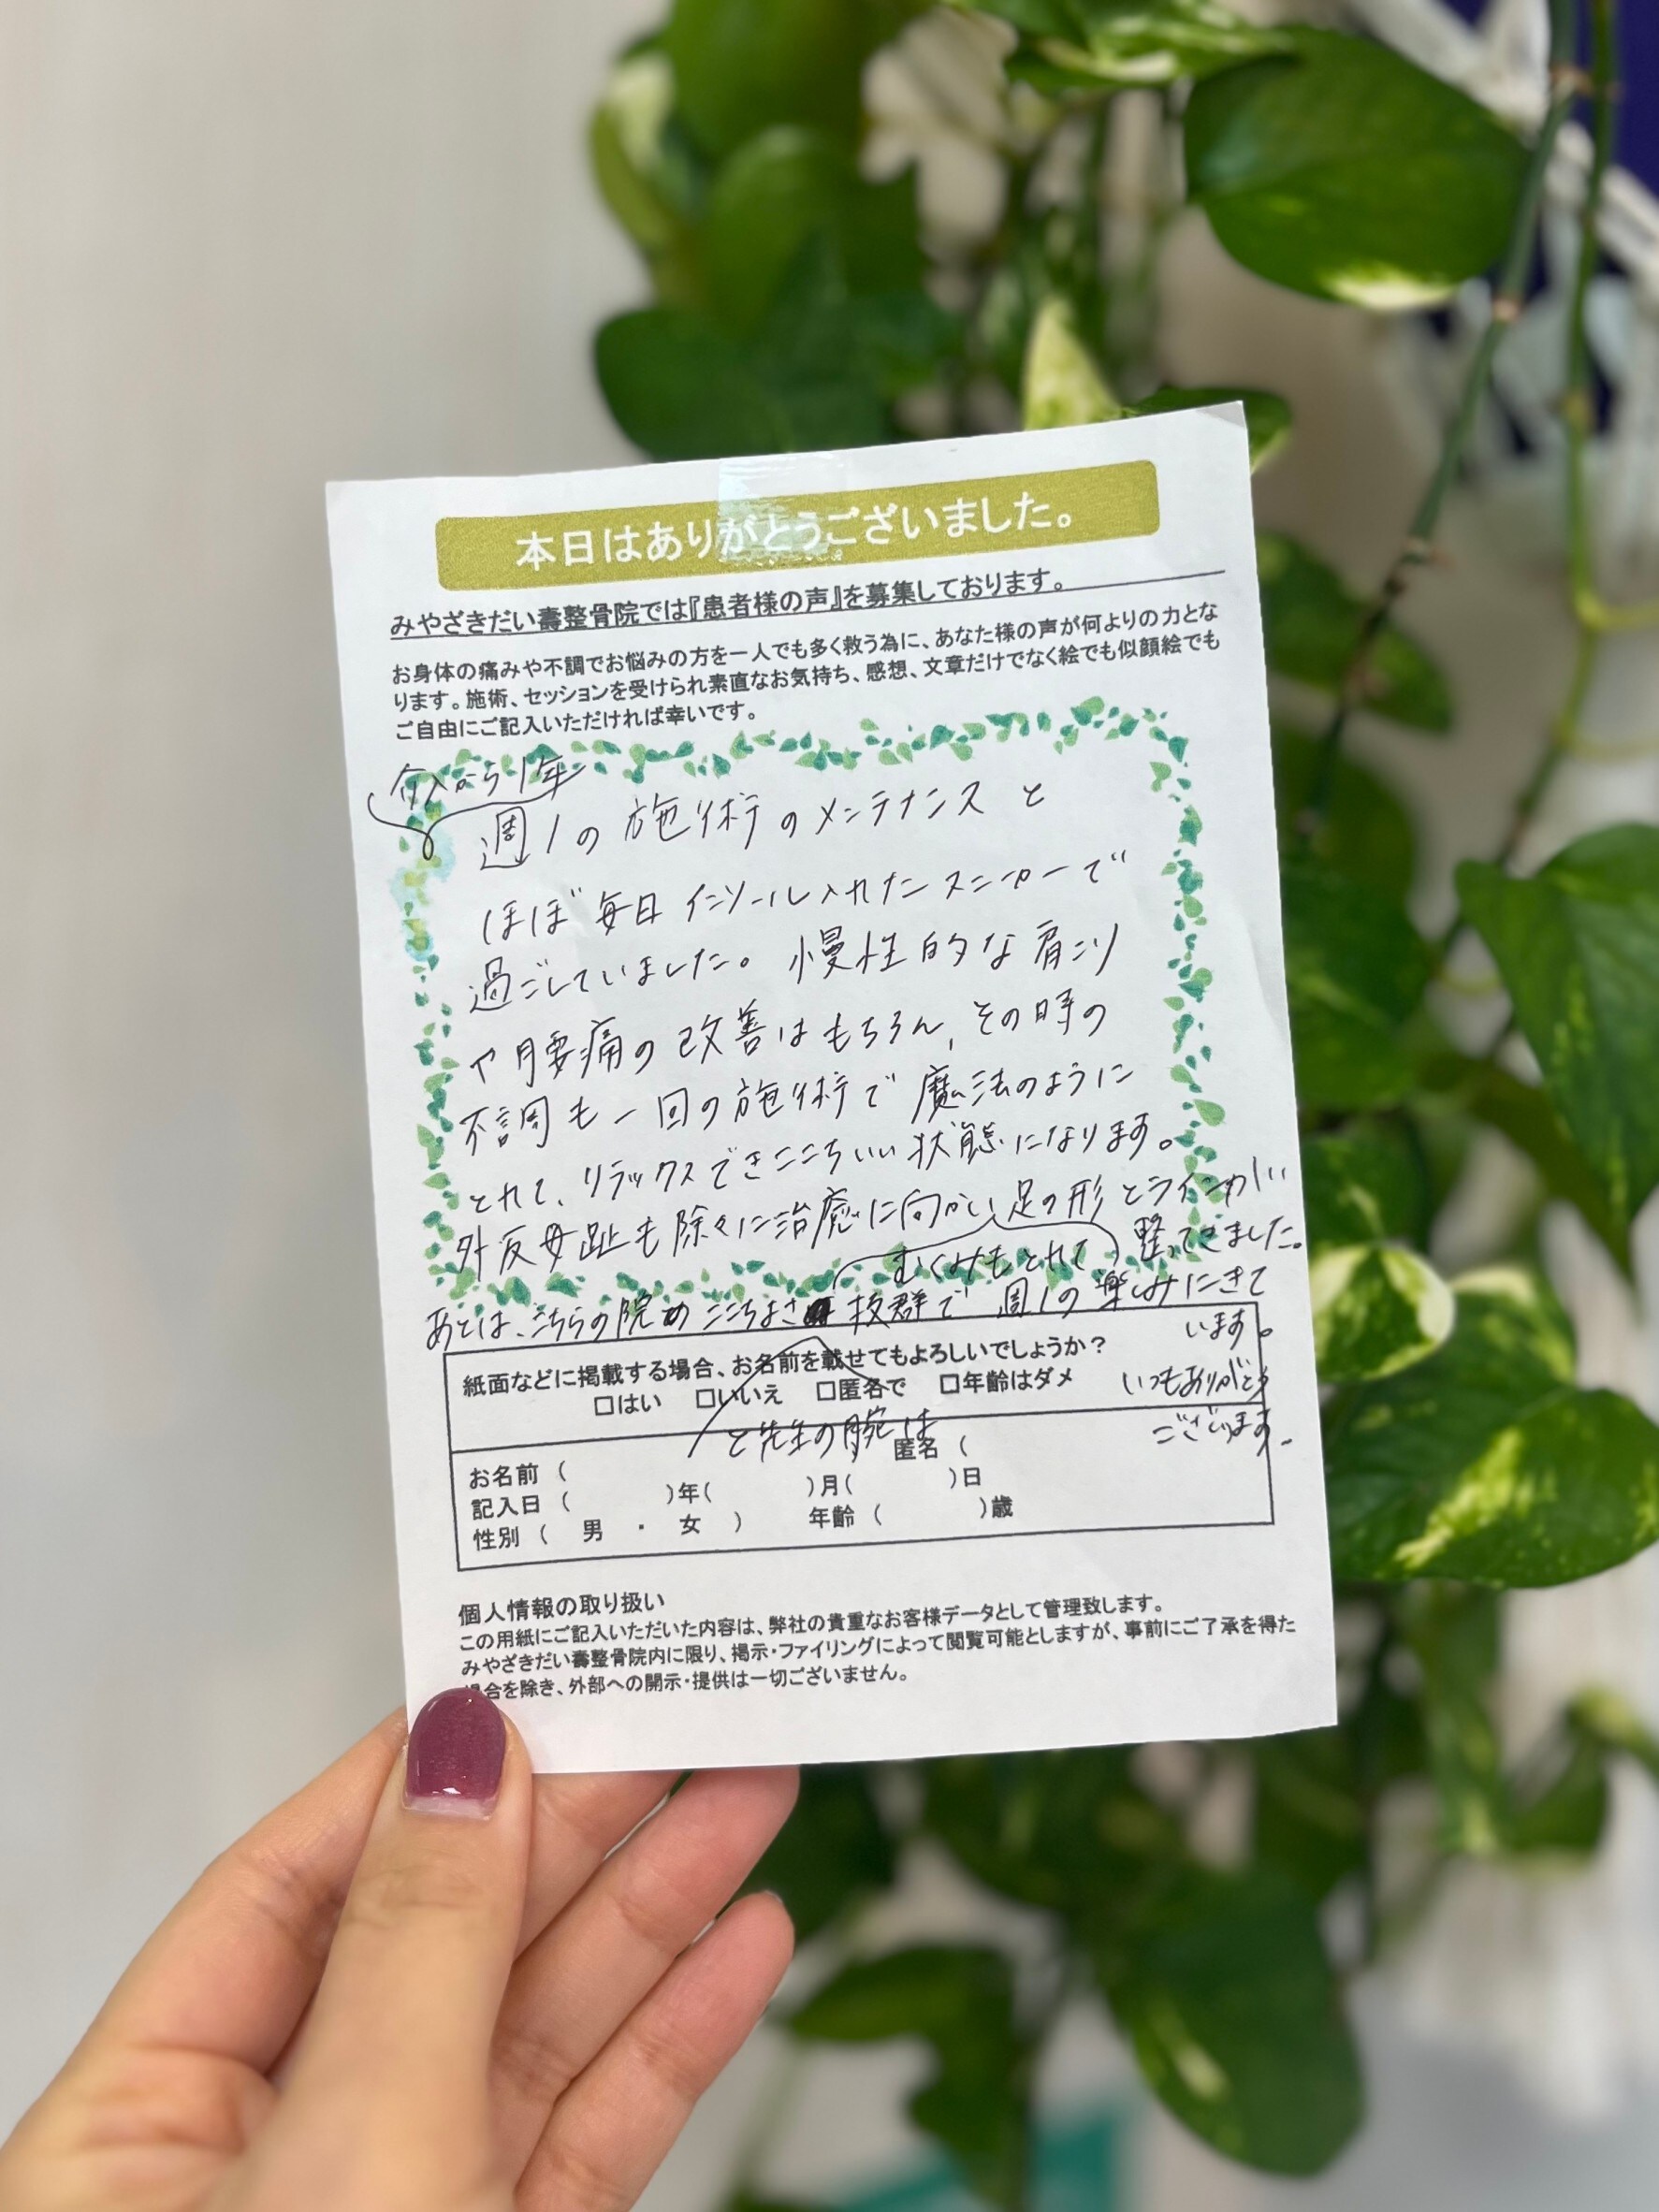 本日はありがとうございました。
みやざきだい壽整骨院では『患者様の声』を募集しております。
お身体の痛みや不調でお悩みの方を一人でも多く救う為に、あなた様の声が何よりの力とな
ります。施術、セッションを受けられ素直なお気持ち、感想、文章だけでなく絵でも似顔絵でも
ご自由にご記入いただければ幸いです。
から1年
週1の施術のメンテナンスと
ほぼ毎日インソール入れたスニーカーで
過ごしていました。慢性的な肩こり
や腰痛の改善はもちろん、その時の
不調も一回の施術で魔法のように
とれて、リラックスできここちいい状態になります。
外反母趾も除々に治癒に向かい足の形とラインが
むくみもとれて
整ってきました。
あとは、こちらの院のここちよさ抜群で週1の楽しみにきて
います。
と先生の腕は
いつもありがとう
ございます。
紙面などに掲載する場合、お名前を載せてもよろしいでしょうか？
□はい □いいえ □匿名で □年齢はダメ
お名前（ 匿名（
記入日（ ）年（ ）月（ ）日
性別（ 男 ・ 女 ） 年齢（ ）歳
個人情報の取り扱い
この用紙にご記入いただいた内容は、弊社の貴重なお客様データとして管理致します。
みやざきだい壽整骨院内に限り、掲示・ファイリングによって閲覧可能としますが、事前にご了承を得た
場合を除き、外部への開示・提供は一切ございません。